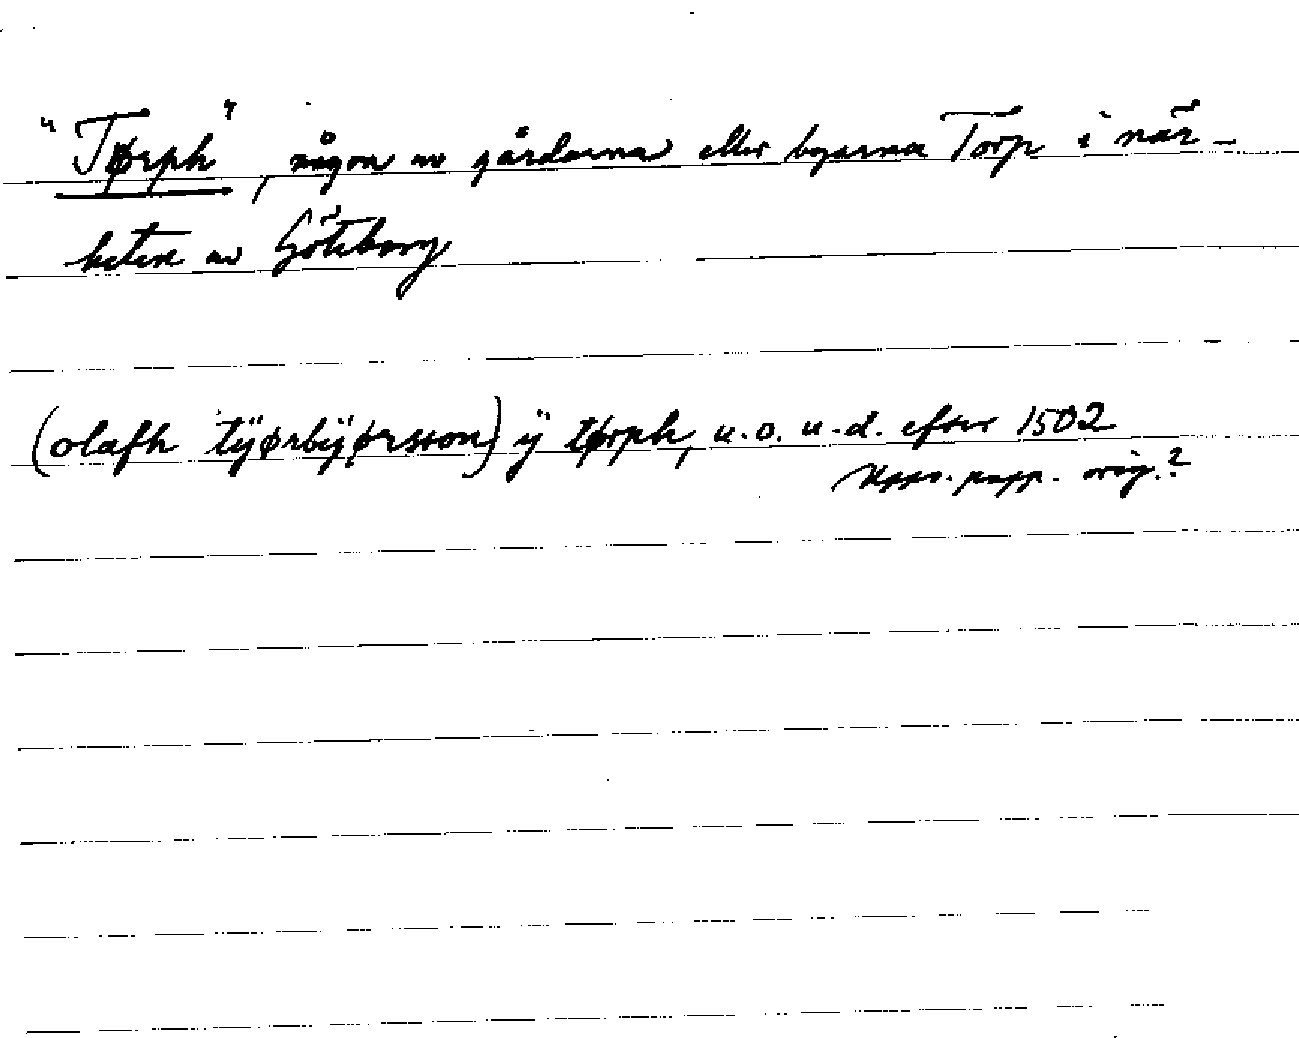 "Tørph", någon av gårdarna eller byarna Torp i när-
heten av Göteborg
(olafh tÿørbÿørsson) ÿ tørph, u.o. u.d. efter 1502
Upps. papp. orig.?